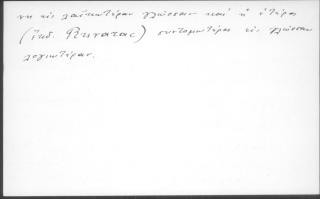 νη εἰς λαϊκωτέραν γλῶσσαν καὶ ἡ ἑτέρα
(ἔκδ. Βενετίας) συντομωτέρα εἰς γλῶσσαν
λογιωτέραν.